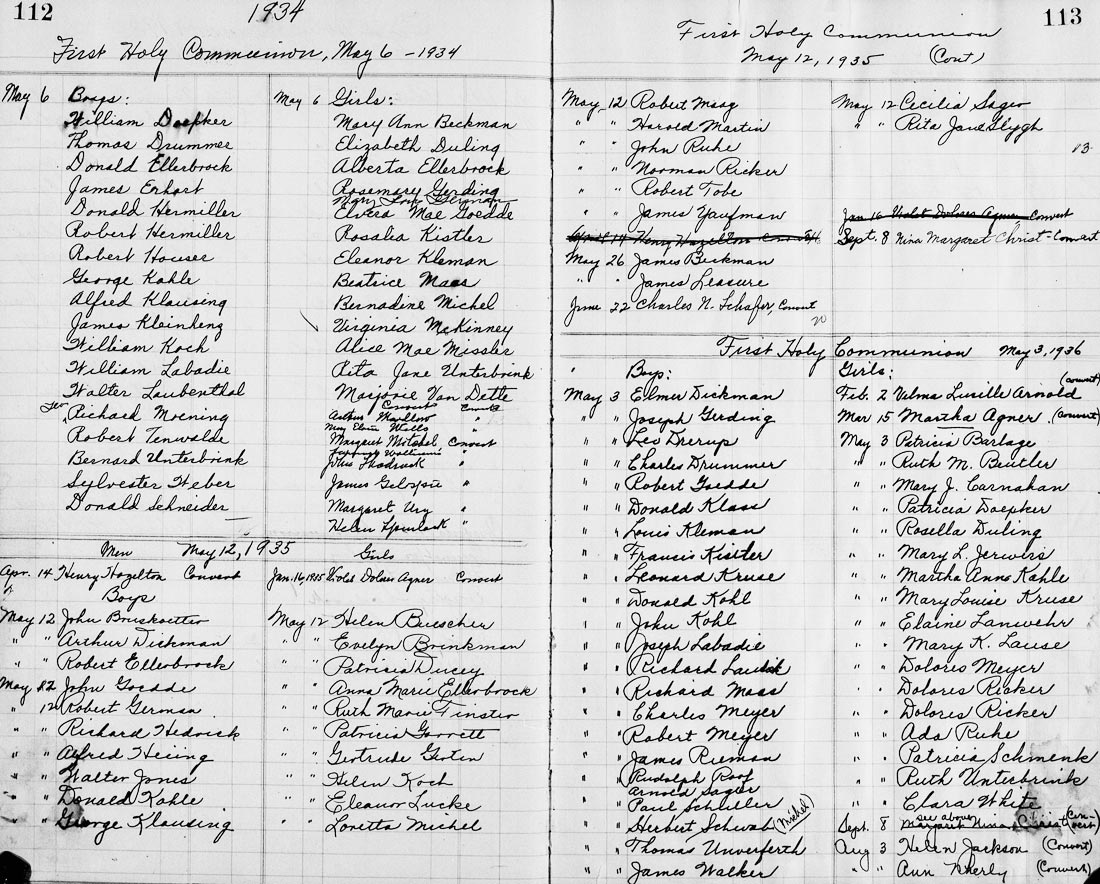 112
1934
First Holy Communion, May 6 - 1934
May 6 Boys:
William Doepker
Thomas Drummer
Donald Ellerbrock
James Erhart
Donald Hermiller
Robert Hermiller
Robert Houser
George Kahle
Alfred Klausing
James Kleinhenz
William Koch
William Labadie
Walter Laubenthal
Richard Moening
Robert Tenwalde
Bernard Unterbrink
Sylvester Weber
Donald Schneider
May 6 Girls:
Mary Ann Beckman
Elizabeth Duling
Alberta Ellerbrock
Rosemary Gerding
Mary Lou German
Elvera Mae Goedde
Rosalia Kistler
Eleanor Kleman
Beatrice Maas
Bernadine Michel
Virginia McKinney
Alice Mae Missler
Rita Jane Unterbrink
Marjorie Van Dette
Convert
Convert
Arthur "
Wells "
Margaret Mitchel Convert
John Shadrack "
James Gillespie "
Margaret Ury "
Helen Spurlock "
Men May 12, 1935 Girls
Apr. 14 Henry Hazelton Convert
Boys
May 12 John Brueckotter
" " Arthur Dickman
" " Robert Ellerbrock
May 12 John Goedde
" 12 Robert German
" " Richard Hedrick
" " Alfred Heiing
" " Walter Jones
" " Donald Kahle
" " George Klausing
Jan. 16, 1935 Violet Dolores Agner Convert
May 12 Helen Buescher
" " Evelyn Brinkman
" " Patricia Ducey
" " Anna Marie Ellerbrock
" " Ruth Marie Finster
" " Patricia Garrett
" " Gertrude Gerten
" " Helen Koch
" " Eleanor Lucke
" " Loretta Michel
113
First Holy Communion
May 12, 1935 (Cont)
May 12 Robert Maag
" " Harold Martin
" " John Ruhe
" " Norman Ricker
" " Robert Tobe
" " James Kaufman
April 14 Henry Hazelton Convert
May 26 James Beckman
" " James Leasure
June 22 Charles N. Schafer, Convert
20
May 12 Cecilia Sager
" " Rita Jane Slygh
13
Jan 16 Violet Dolores Agner Convert
Sept. 8 Nina Margaret Christ - Convert
First Holy Communion May 3, 1936
Boys:
May 3 Elmer Dickman
" " Joseph Gerding
" " Leo Drerup
" " Charles Drummer
" " Robert Goedde
" " Donald Klass
" " Louis Kleman
" " Francis Kistler
" " Leonard Kruse
" " Donald Kohl
" " John Kohl
" " Joseph Labadie
" " Richard
" " Richard Maas
" " Charles Meyer
" " Robert Meyer
" " James Rieman
" " Rudolph Roof
Arnold Sager
" " Paul Schuller
" " Herbert Schwab (Michel)
" " Thomas Unverferth
" " James Walker
Girls:
Feb. 2 Velma Lucille Arnold (convert)
Mar 15 Martha Agner (convert)
May 3 Patricia Barlage
" " Ruth M. Beutler
" " Mary J. Carnahan
" " Patricia Doepker
" " Rosella Duling
" " Mary L. Jerwers
" " Martha Anne Kahle
" " Mary Louise Kruse
" " Elaine Lanwehr
" " Mary K. Lause
" " Dolores Meyer
" " Dolores Ricker
" " Dolores Ricker
" " Ada Ruhe
" " Patricia Schmenk
" " Ruth Unterbrink
" " Clara White
see above
Sept. 8 Margaret Nina Christ (Convert)
Aug 3 Helen Jackson (Convert)
" " Ann (Convert)